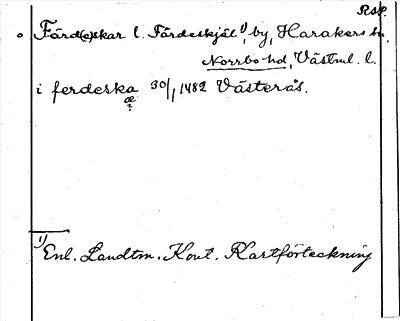 Rsp.
Färd(e)skar l. Färdeskjäl ¹⁾, by, Harakers sn.
Norrbo hd, Västml. l.
i ferdeska 30/1 1482 Västerås.
æ?
¹⁾ Enl. Landtm. Kont. Kartförteckning